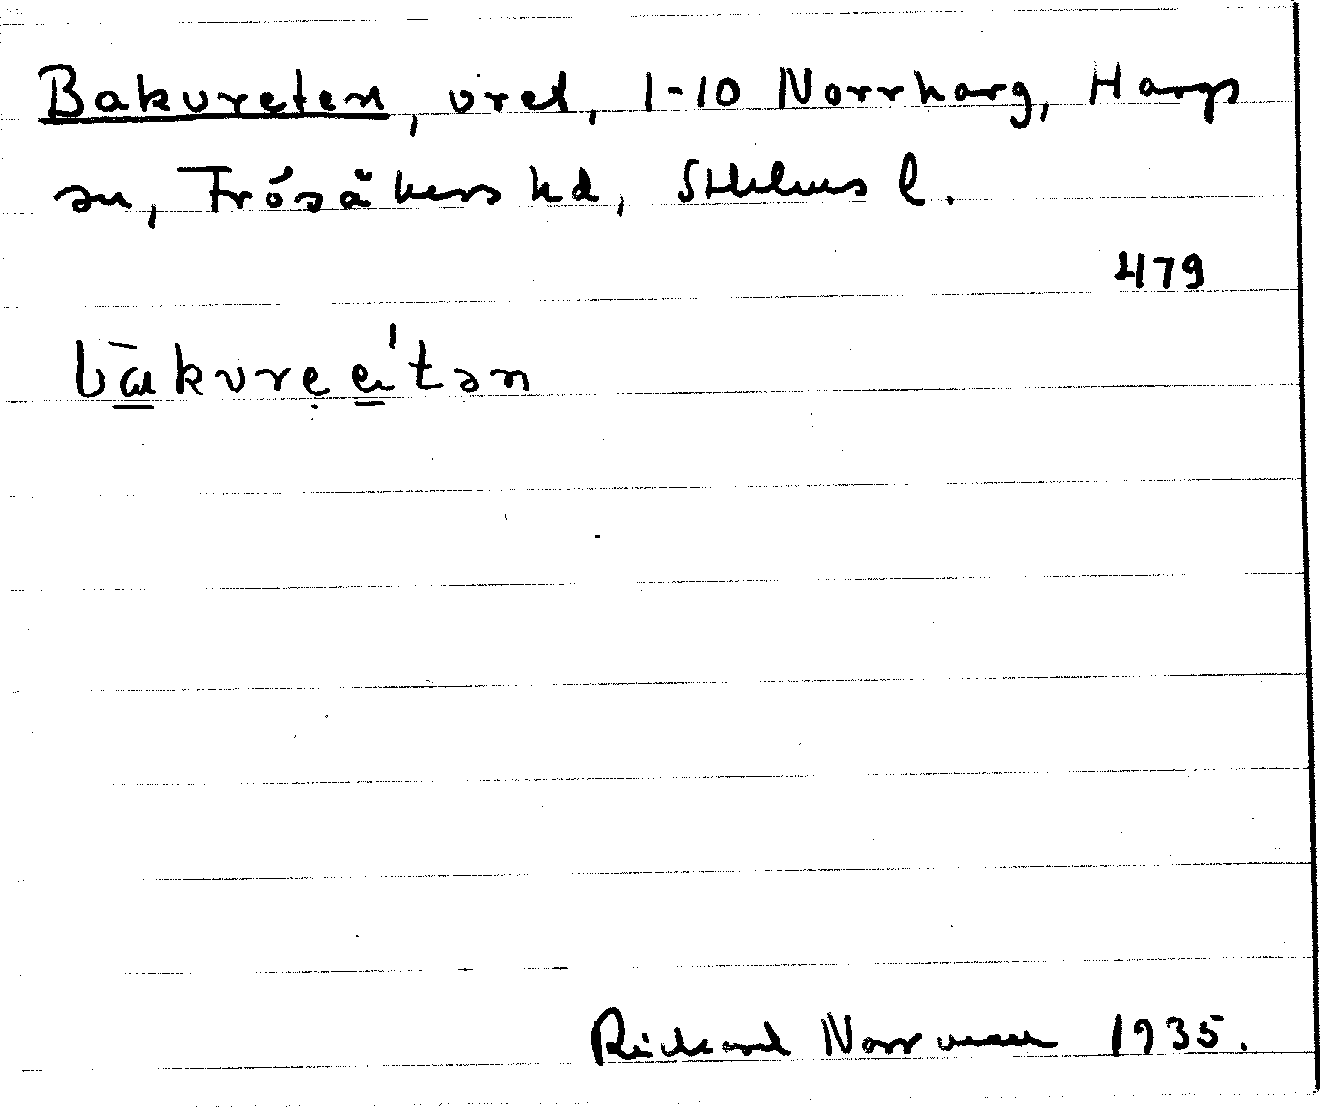 Bakvreten, vret, 1-10 Norrharg, Hargs
sn, Frösåkers hd, Sthlms l.
479
bakvreetən
Richard Norrman 1935.